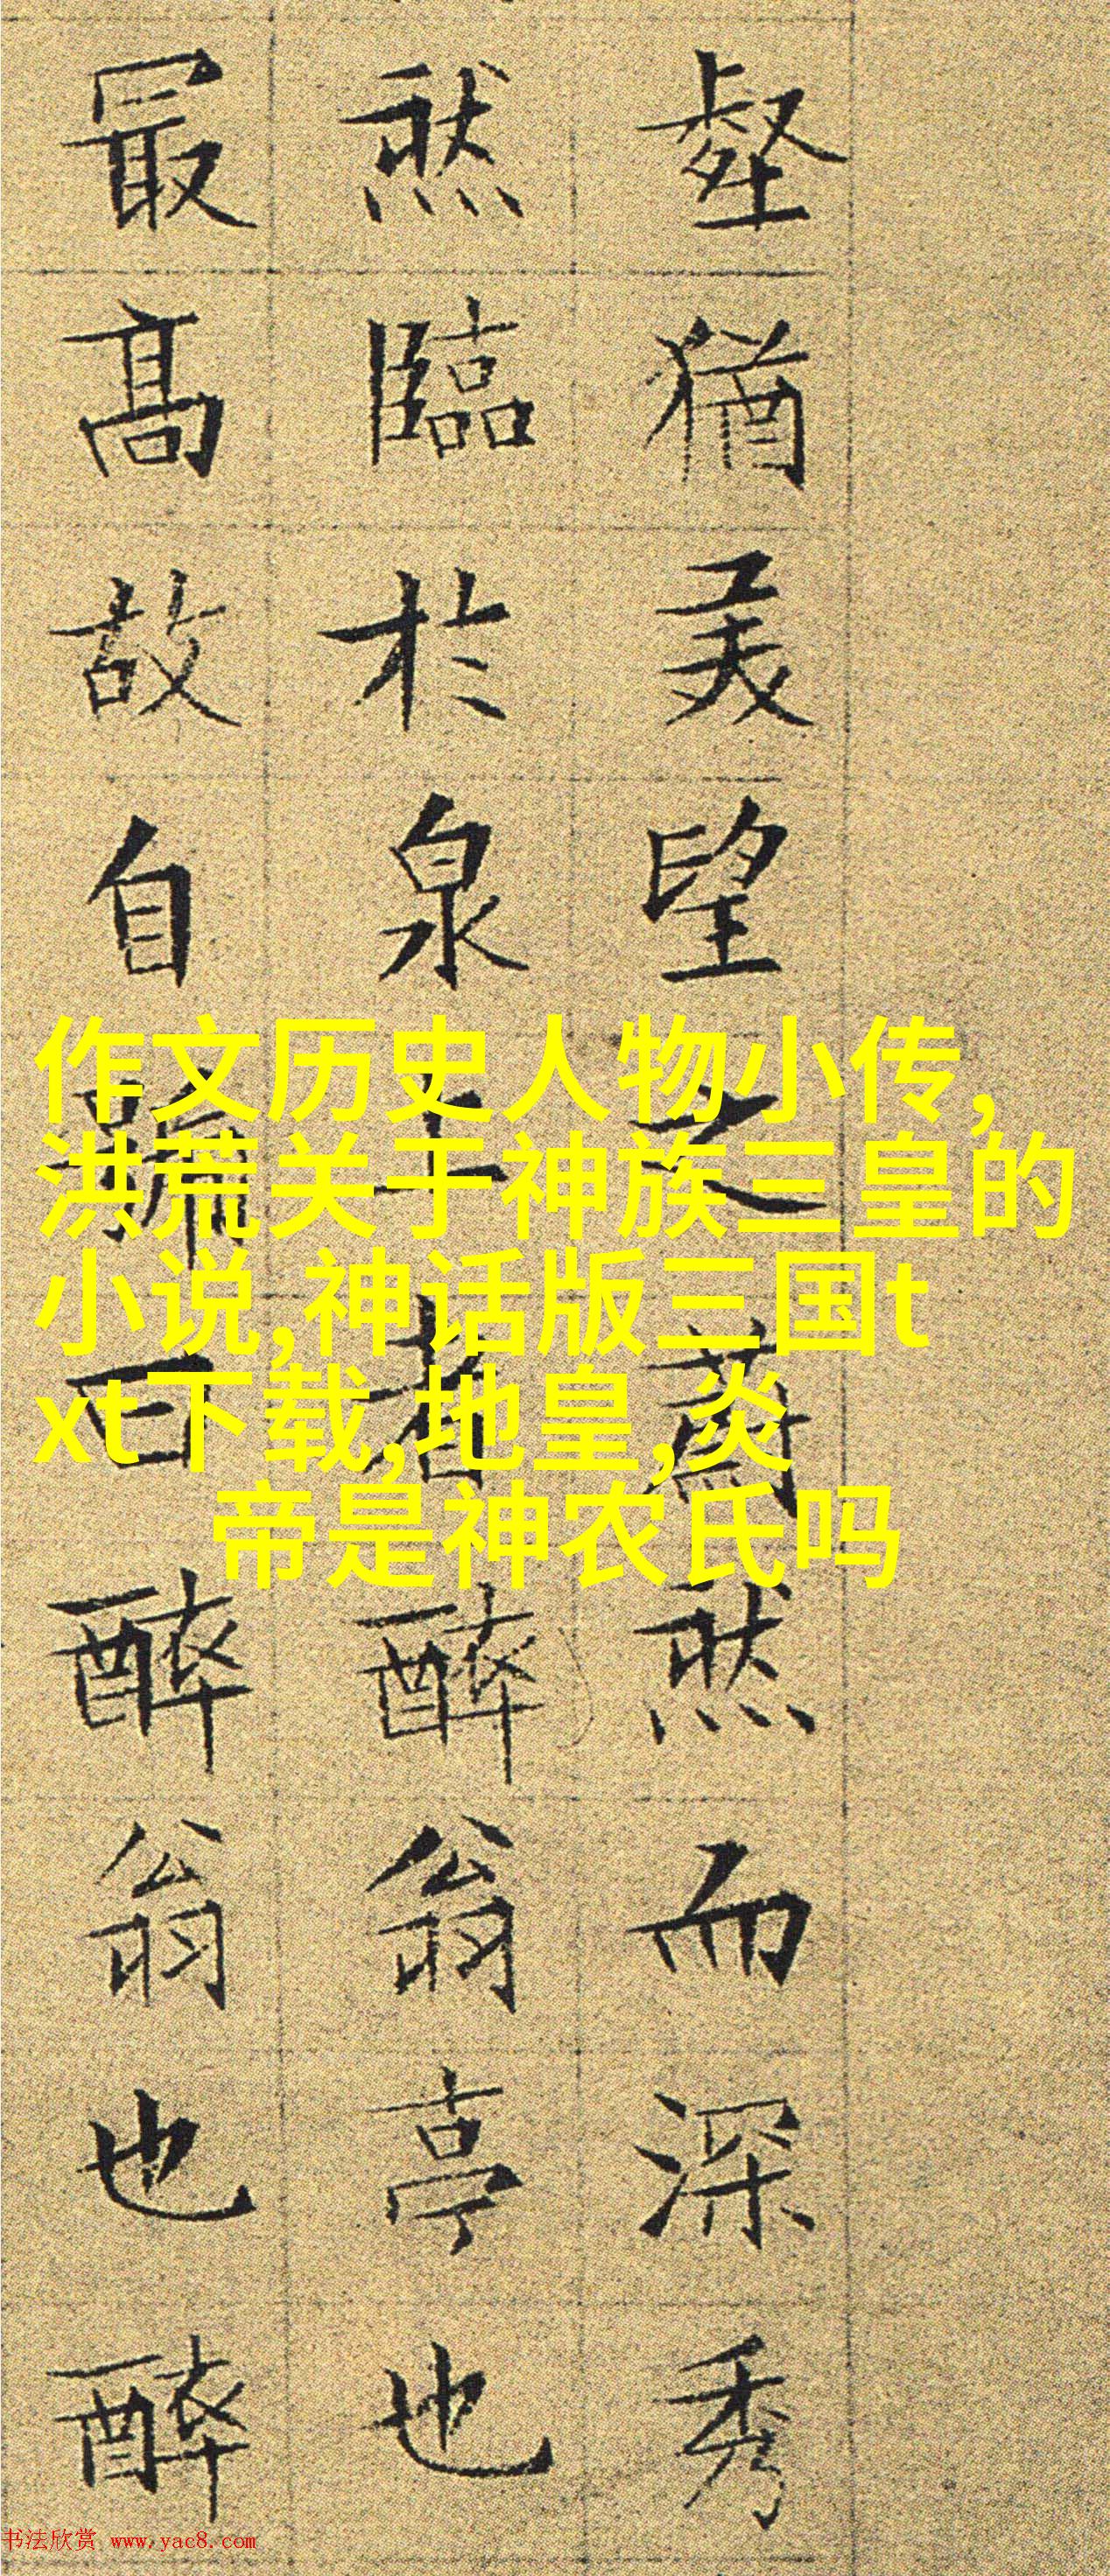 壑猶美望之蔚然而深秀
然臨於泉上者醉翁亭也
最高故自號曰醉翁也醉
作文历史人物小传,
洪荒关于神族三皇的
小说,神话版三国t
xt下载,地皇,炎
帝是神农氏吗
书法欣赏 www.yac8.com